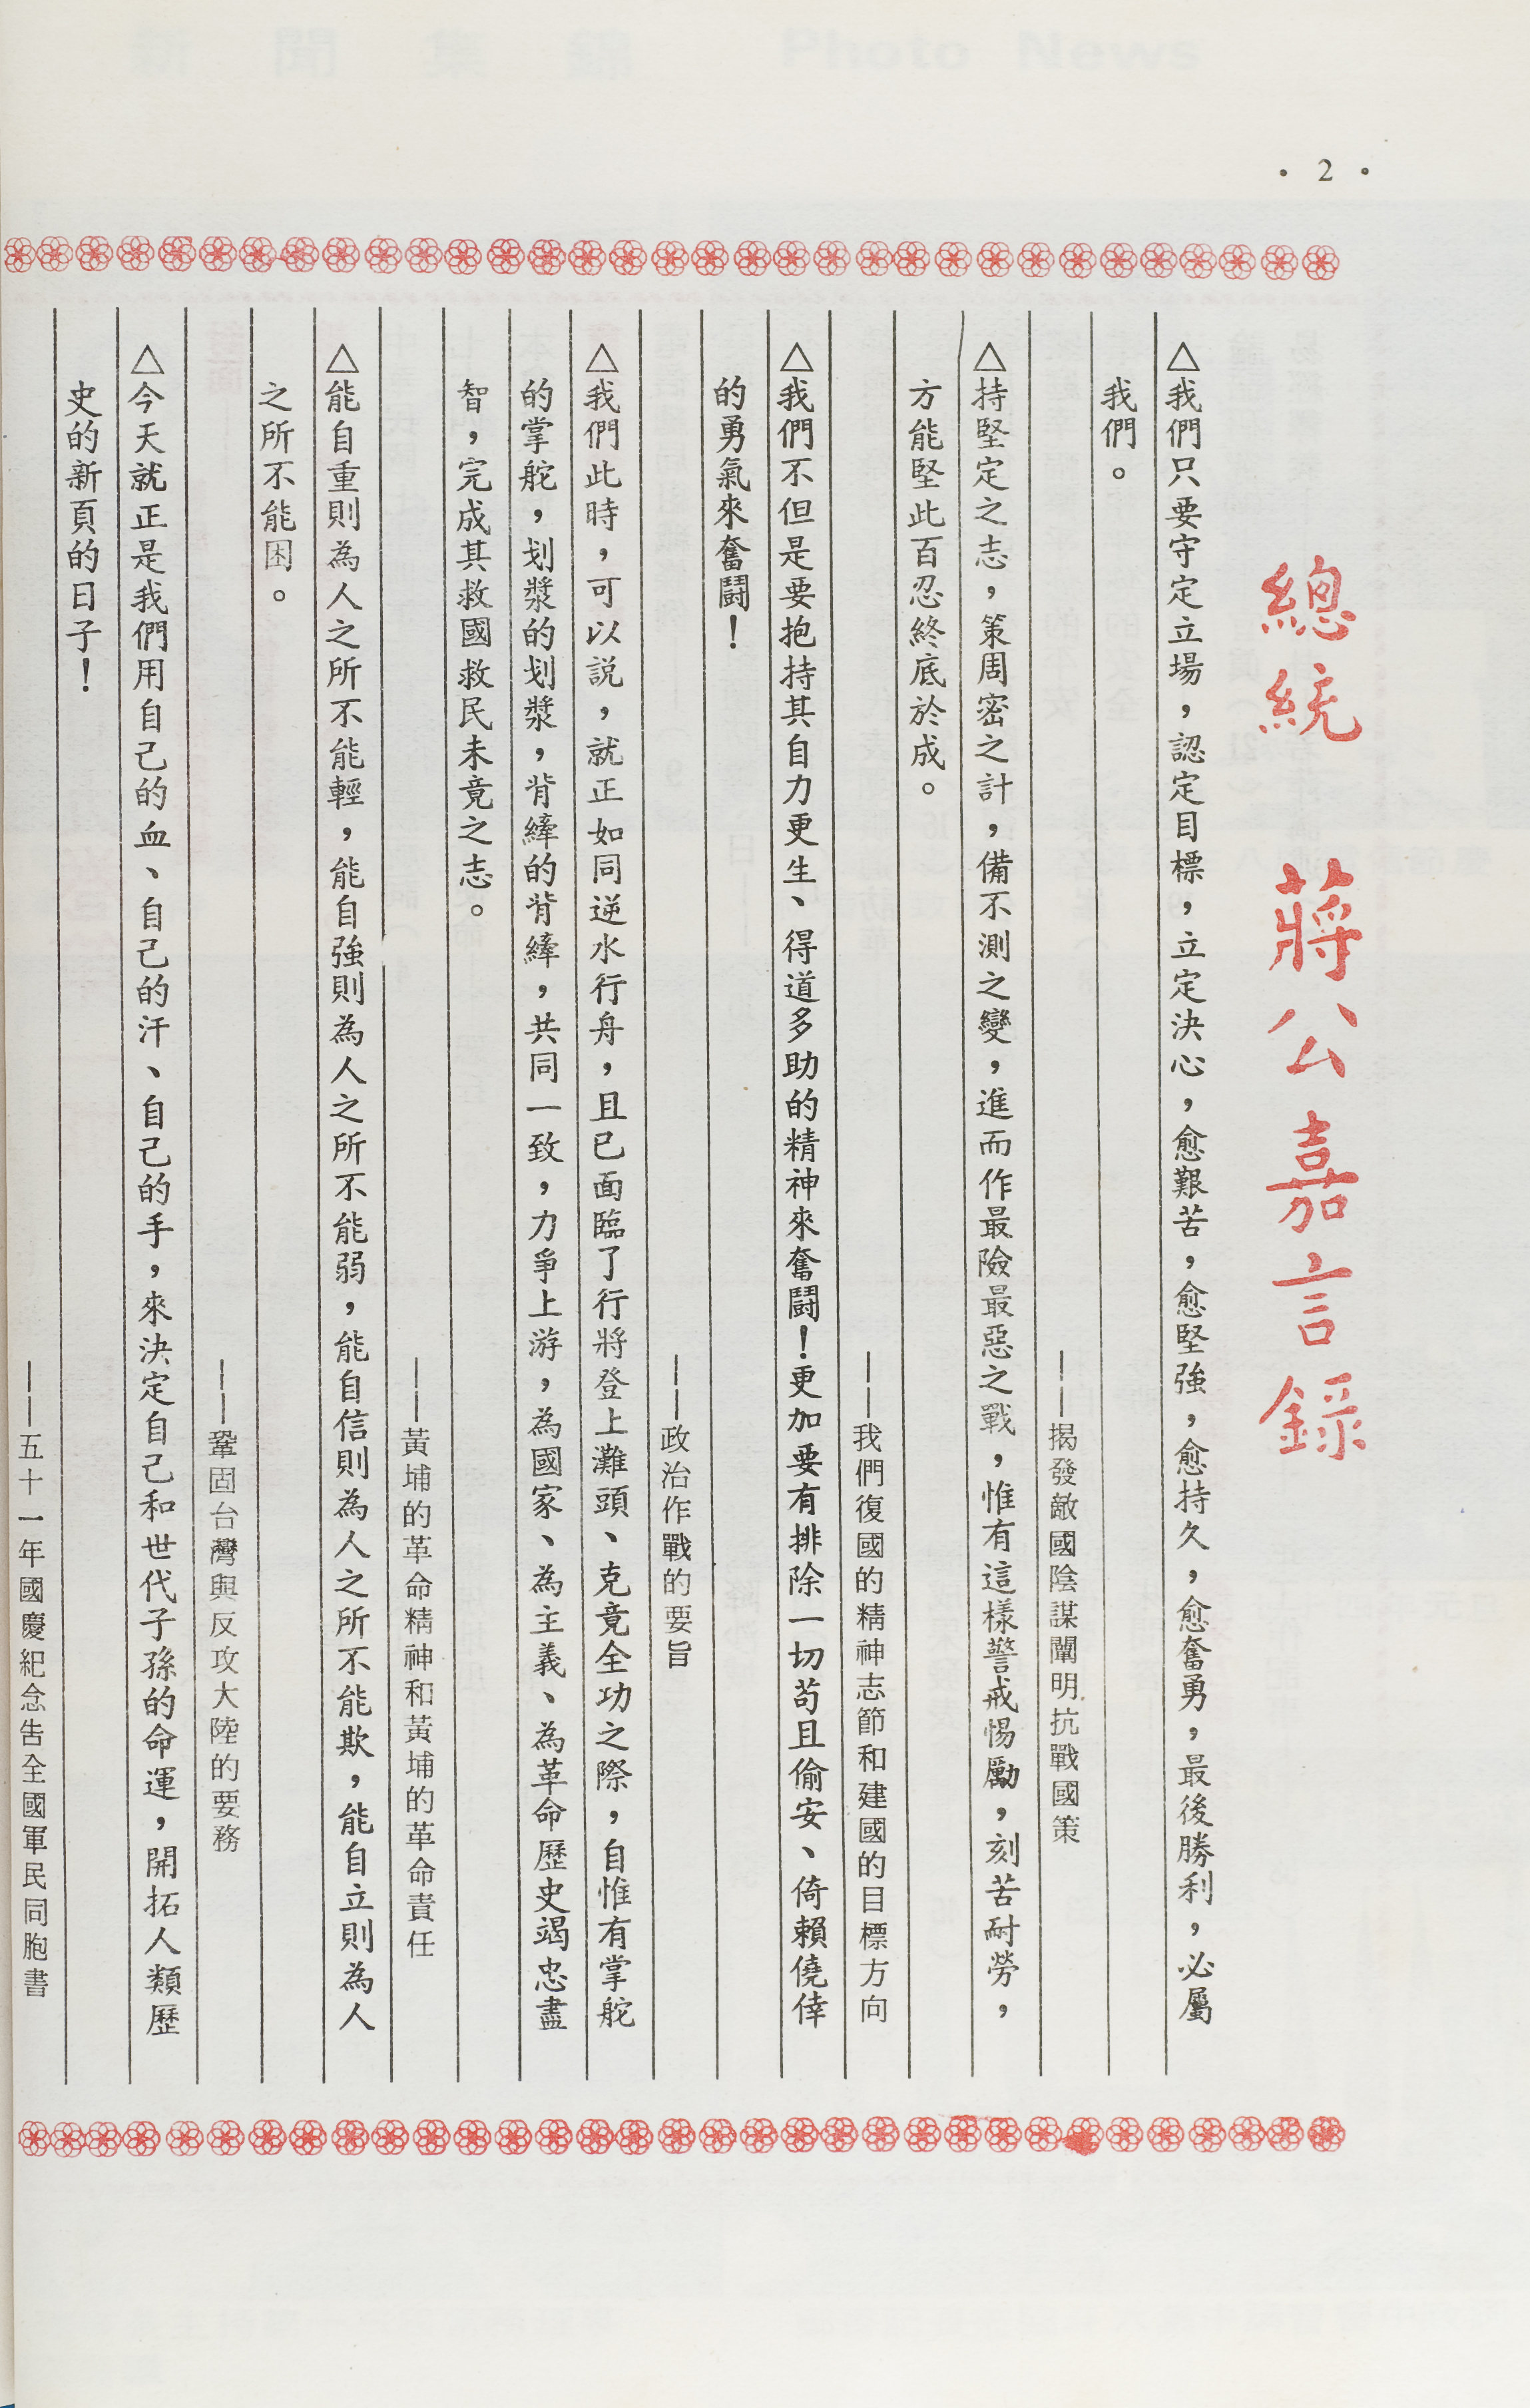 · 2 ·
總統 蔣公嘉言錄
△我們只要守定立場，認定目標，立定決心，愈艱苦，愈堅強，愈持久，愈奮勇，最後勝利，必屬
我們。
——揭發敵國陰謀闡明抗戰國策
△持堅定之志，策周密之計，備不測之變，進而作最險最惡之戰，惟有這樣警戒惕勵，刻苦耐勞，
方能堅此百忍終底於成。
——我們復國的精神志節和建國的目標方向
△我們不但是要抱持其自力更生、得道多助的精神來奮鬪！更加要有排除一切苟且偷安、倚賴僥倖
的勇氣來奮鬪！
——政治作戰的要旨
△我們此時，可以説，就正如同逆水行舟，且已面臨了行將登上灘頭、克竟全功之際，自惟有掌舵
的掌舵，划槳的划槳，背縴的背縴，共同一致，力爭上游，為國家、為主義、為革命歷史竭忠盡
智，完成其救國救民未竟之志。
——黃埔的革命精神和黃埔的革命責任
△能自重則為人之所不能輕，能自強則為人之所不能弱，能自信則為人之所不能欺，能自立則為人
之所不能困。
——鞏固台灣與反攻大陸的要務
△今天就正是我們用自己的血、自己的汗、自己的手，來決定自己和世代子孫的命運，開拓人類歷
史的新頁的日子！
——五十一年國慶紀念告全國軍民同胞書